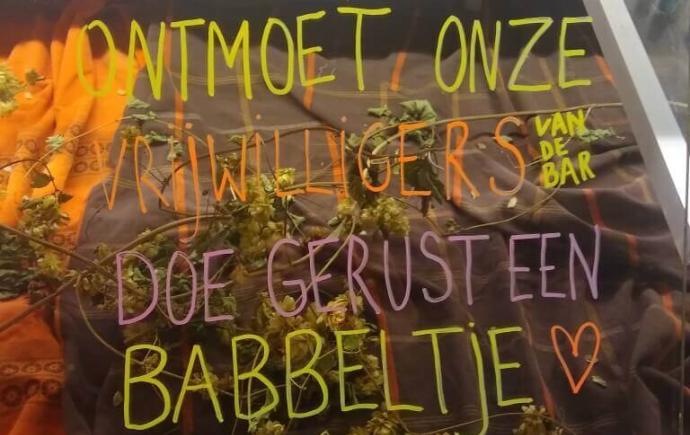 ONTMOET ONZE
VRIJWILLIGERS VAN DE BAR
DOE GERUST EEN
BABBELTJE ♡